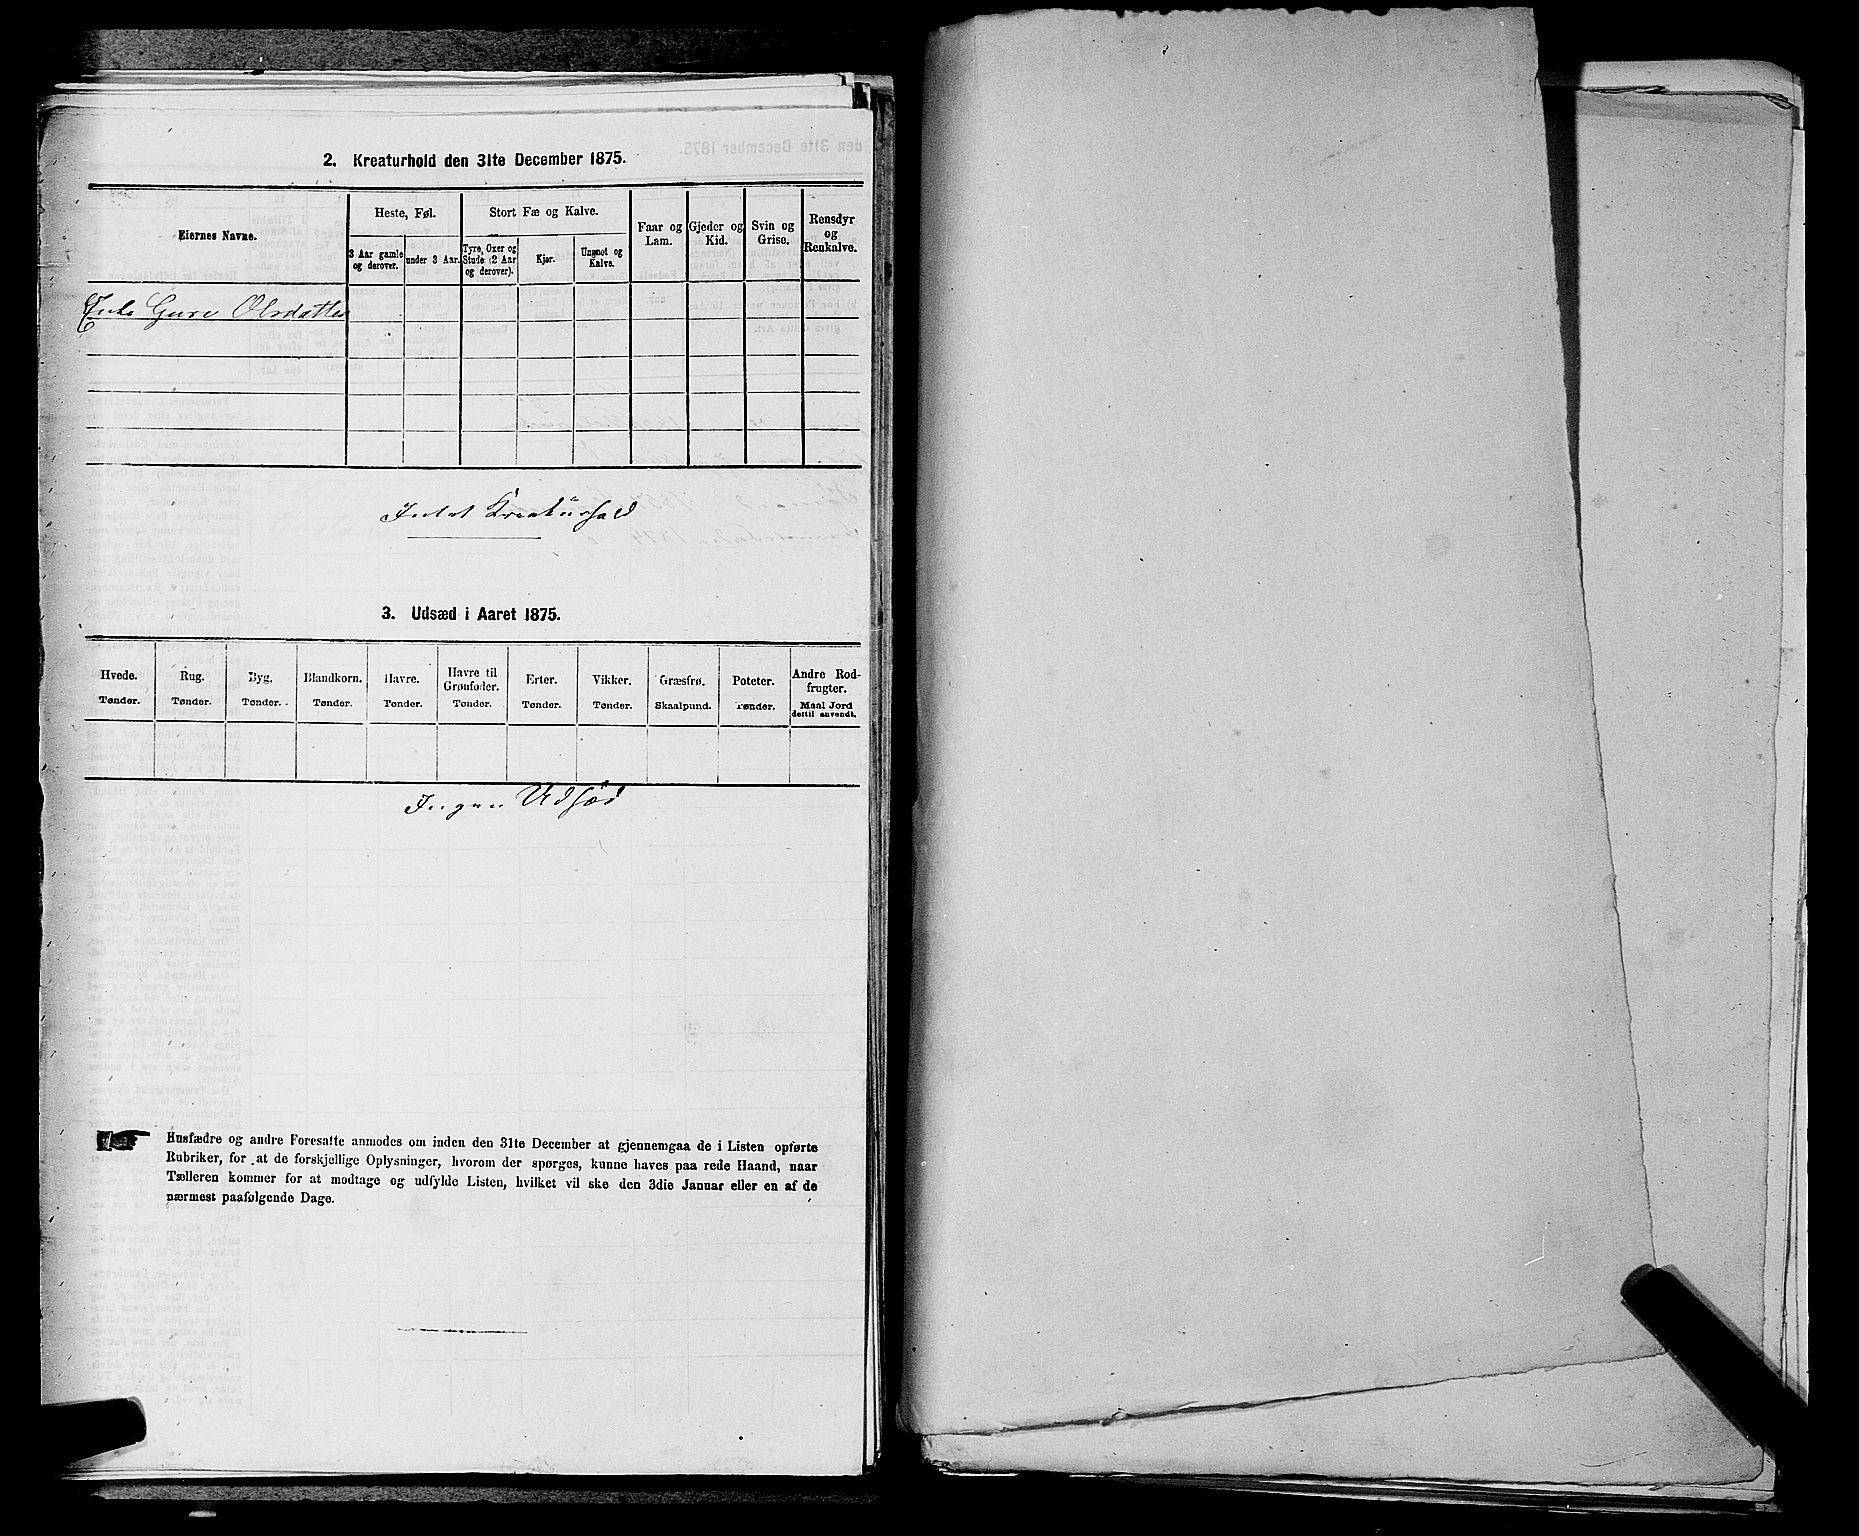 2. Kreaturhold den 31te December 1875.
Eiernes Navne.
Heste, Føl.
3 Aar gamle og derover.
under 3 Aar.
Stort Fæ og Kalve.
Tyre, Oxer og Stude (2 Aar og derover).
Kjør.
Ungnøt og Kalve.
Faar og Lam.
Gjeder og Kid.
Svin og Grise.
Rensdyr og Renkalve.
Enke Guri Olsdatter
Intet Kreaturhold
3. Udsæd i Aaret 1875.
Hvede. Tønder.
Rug. Tønder.
Byg. Tønder.
Blandkorn. Tønder.
Havre. Tønder.
Havre til Grønfoder. Tønder.
Erter. Tønder.
Vikker. Tønder.
Græsfrø. Skaalpund.
Poteter. Tønder.
Andre Rodfrugter. Maal Jord dertil anvendt.
Ingen Udsæd
Husfædre og andre Foresatte anmodes om inden den 31te December at gjennemgaa de i Listen opførte
Rubriker, for at de forskjellige Oplysninger, hvorom der spørges, kunne haves paa rede Haand, naar
Tælleren kommer for at modtage og udfylde Listen, hvilket vil ske den 3die Januar eller en af de
nærmest paafølgende Dage.